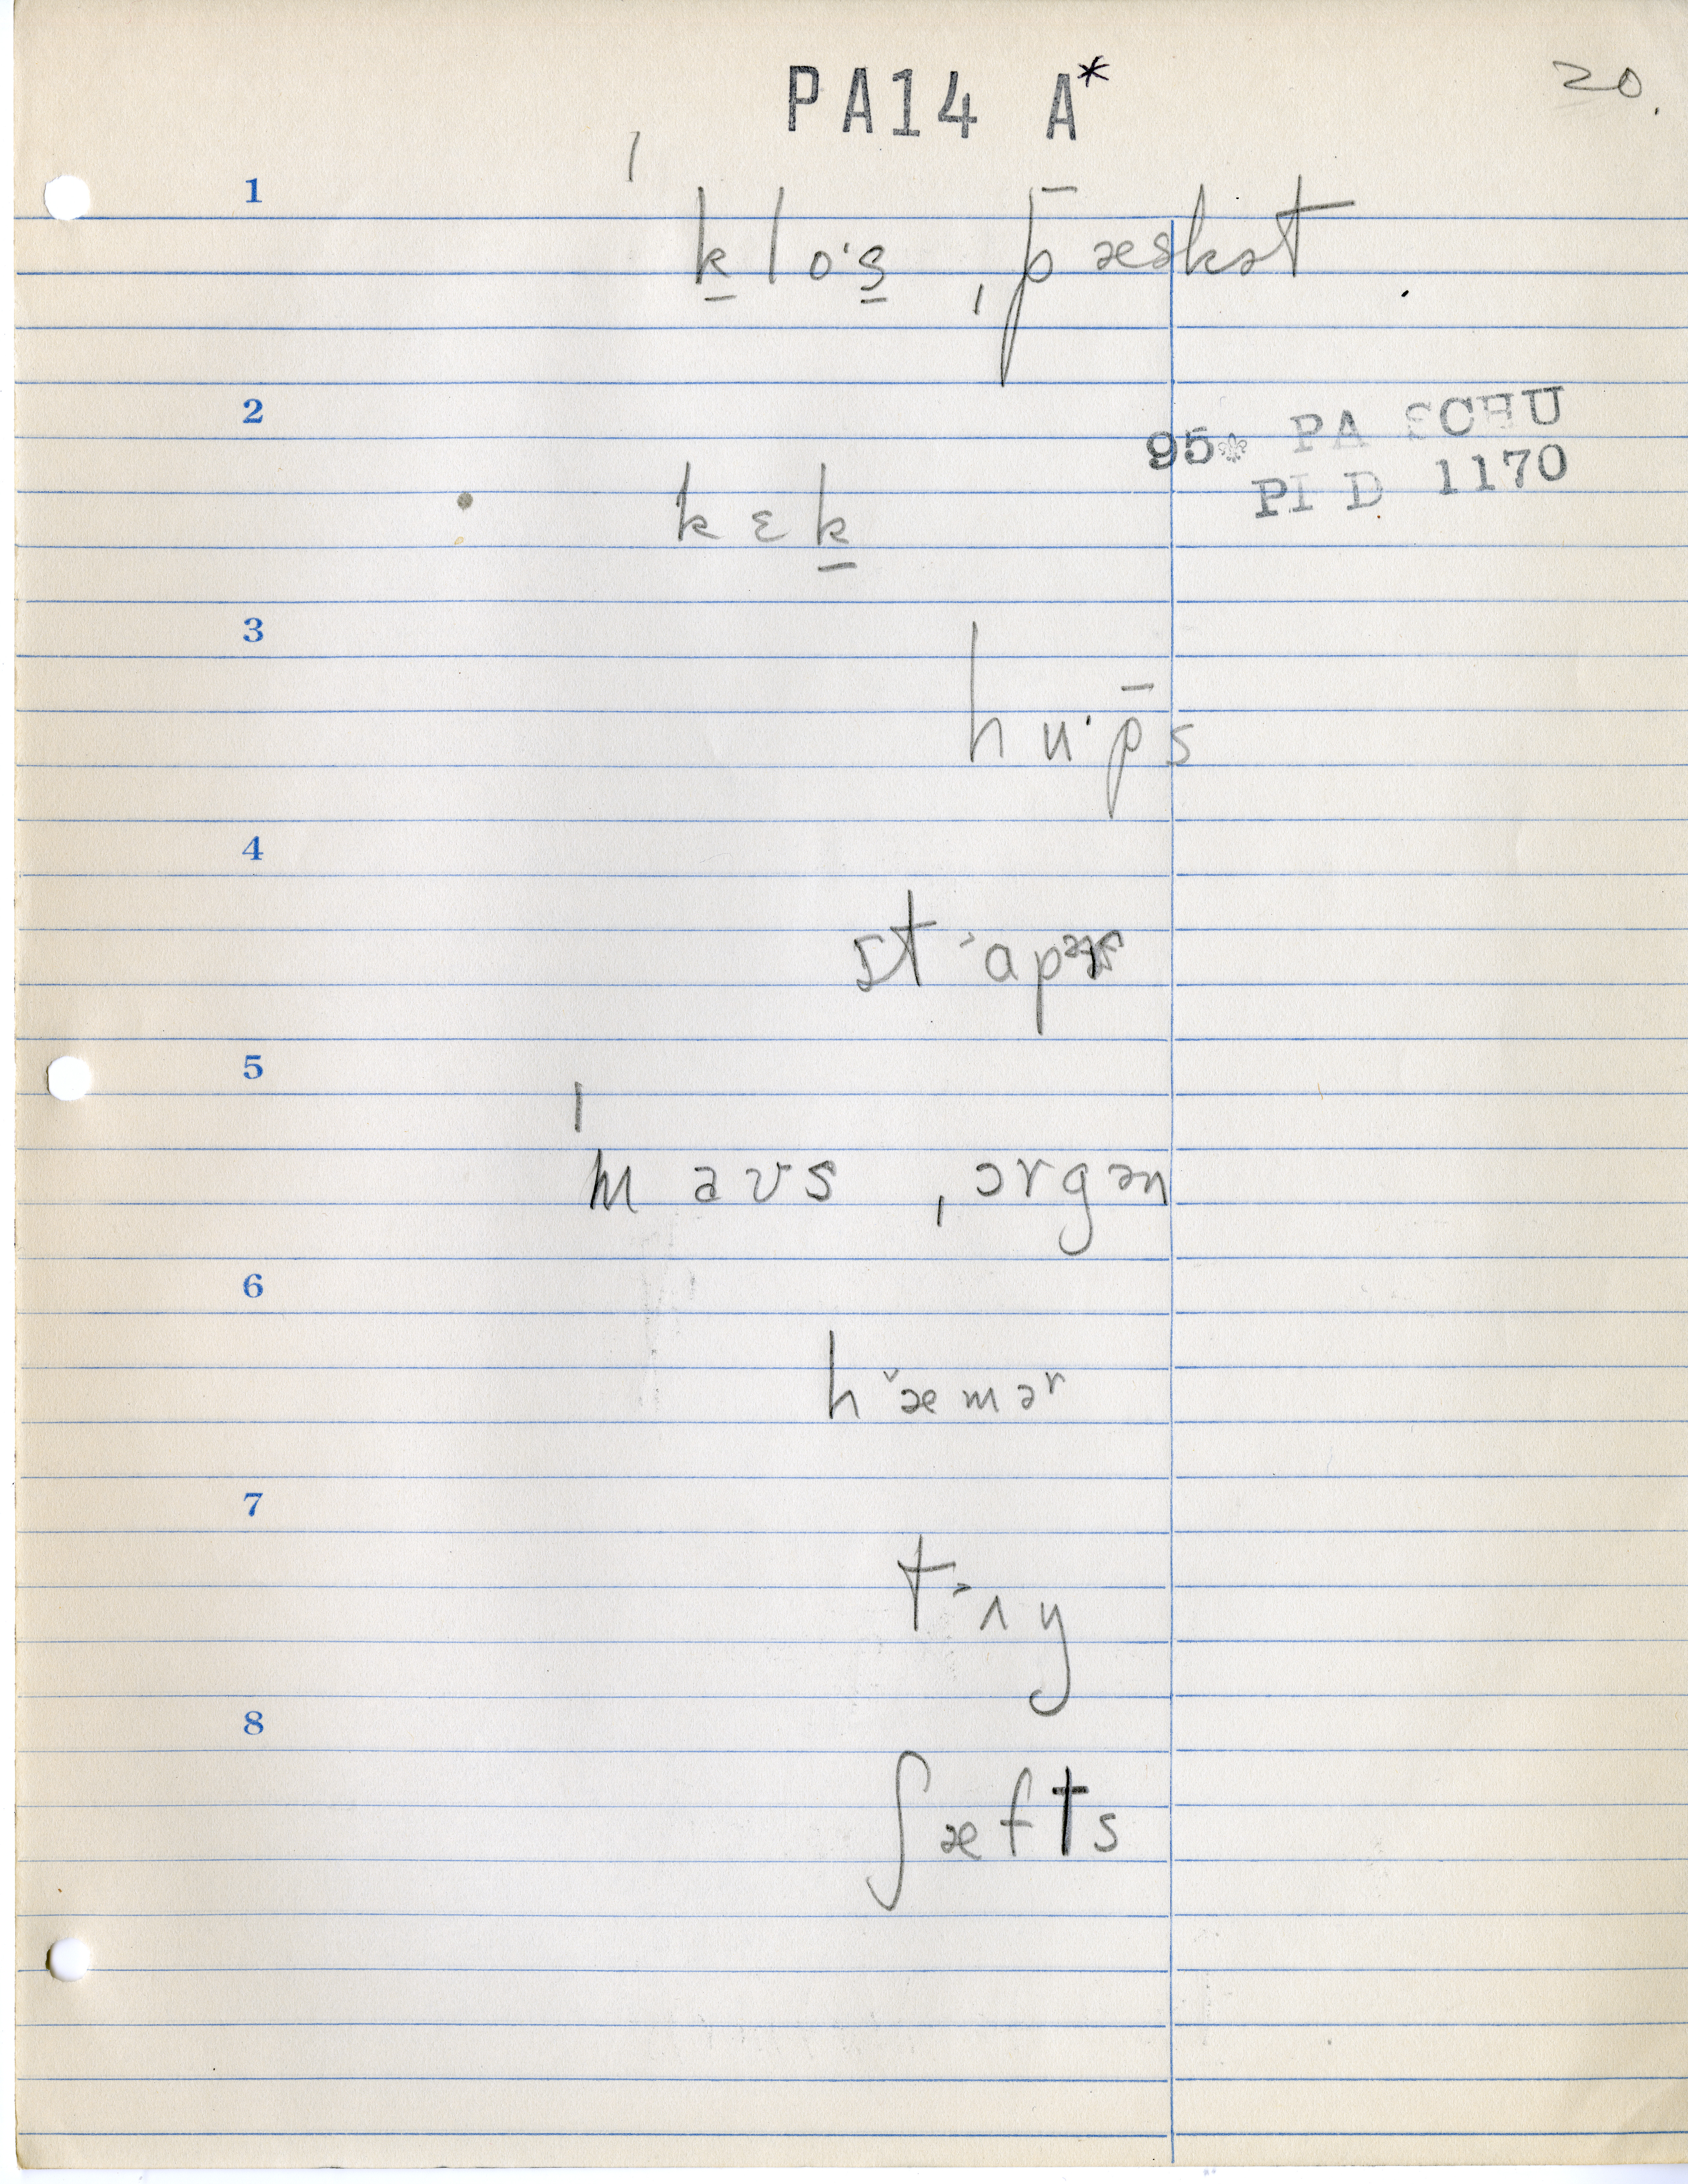 PA14 A*
20.
1
ˈk̠lo·s̠ ˌp̄æskət
2
95 PA SCHU
PI D 1170
kɛk̠
3
hu·p̄s
4
5
ˈmaʊs ˌɔrgən
6
h˅æməʳ
7
t˃ʌy
8
ʃæfts